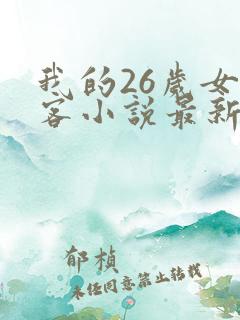 我的26岁女
客小说最新
郁桢
未经同意禁止转载